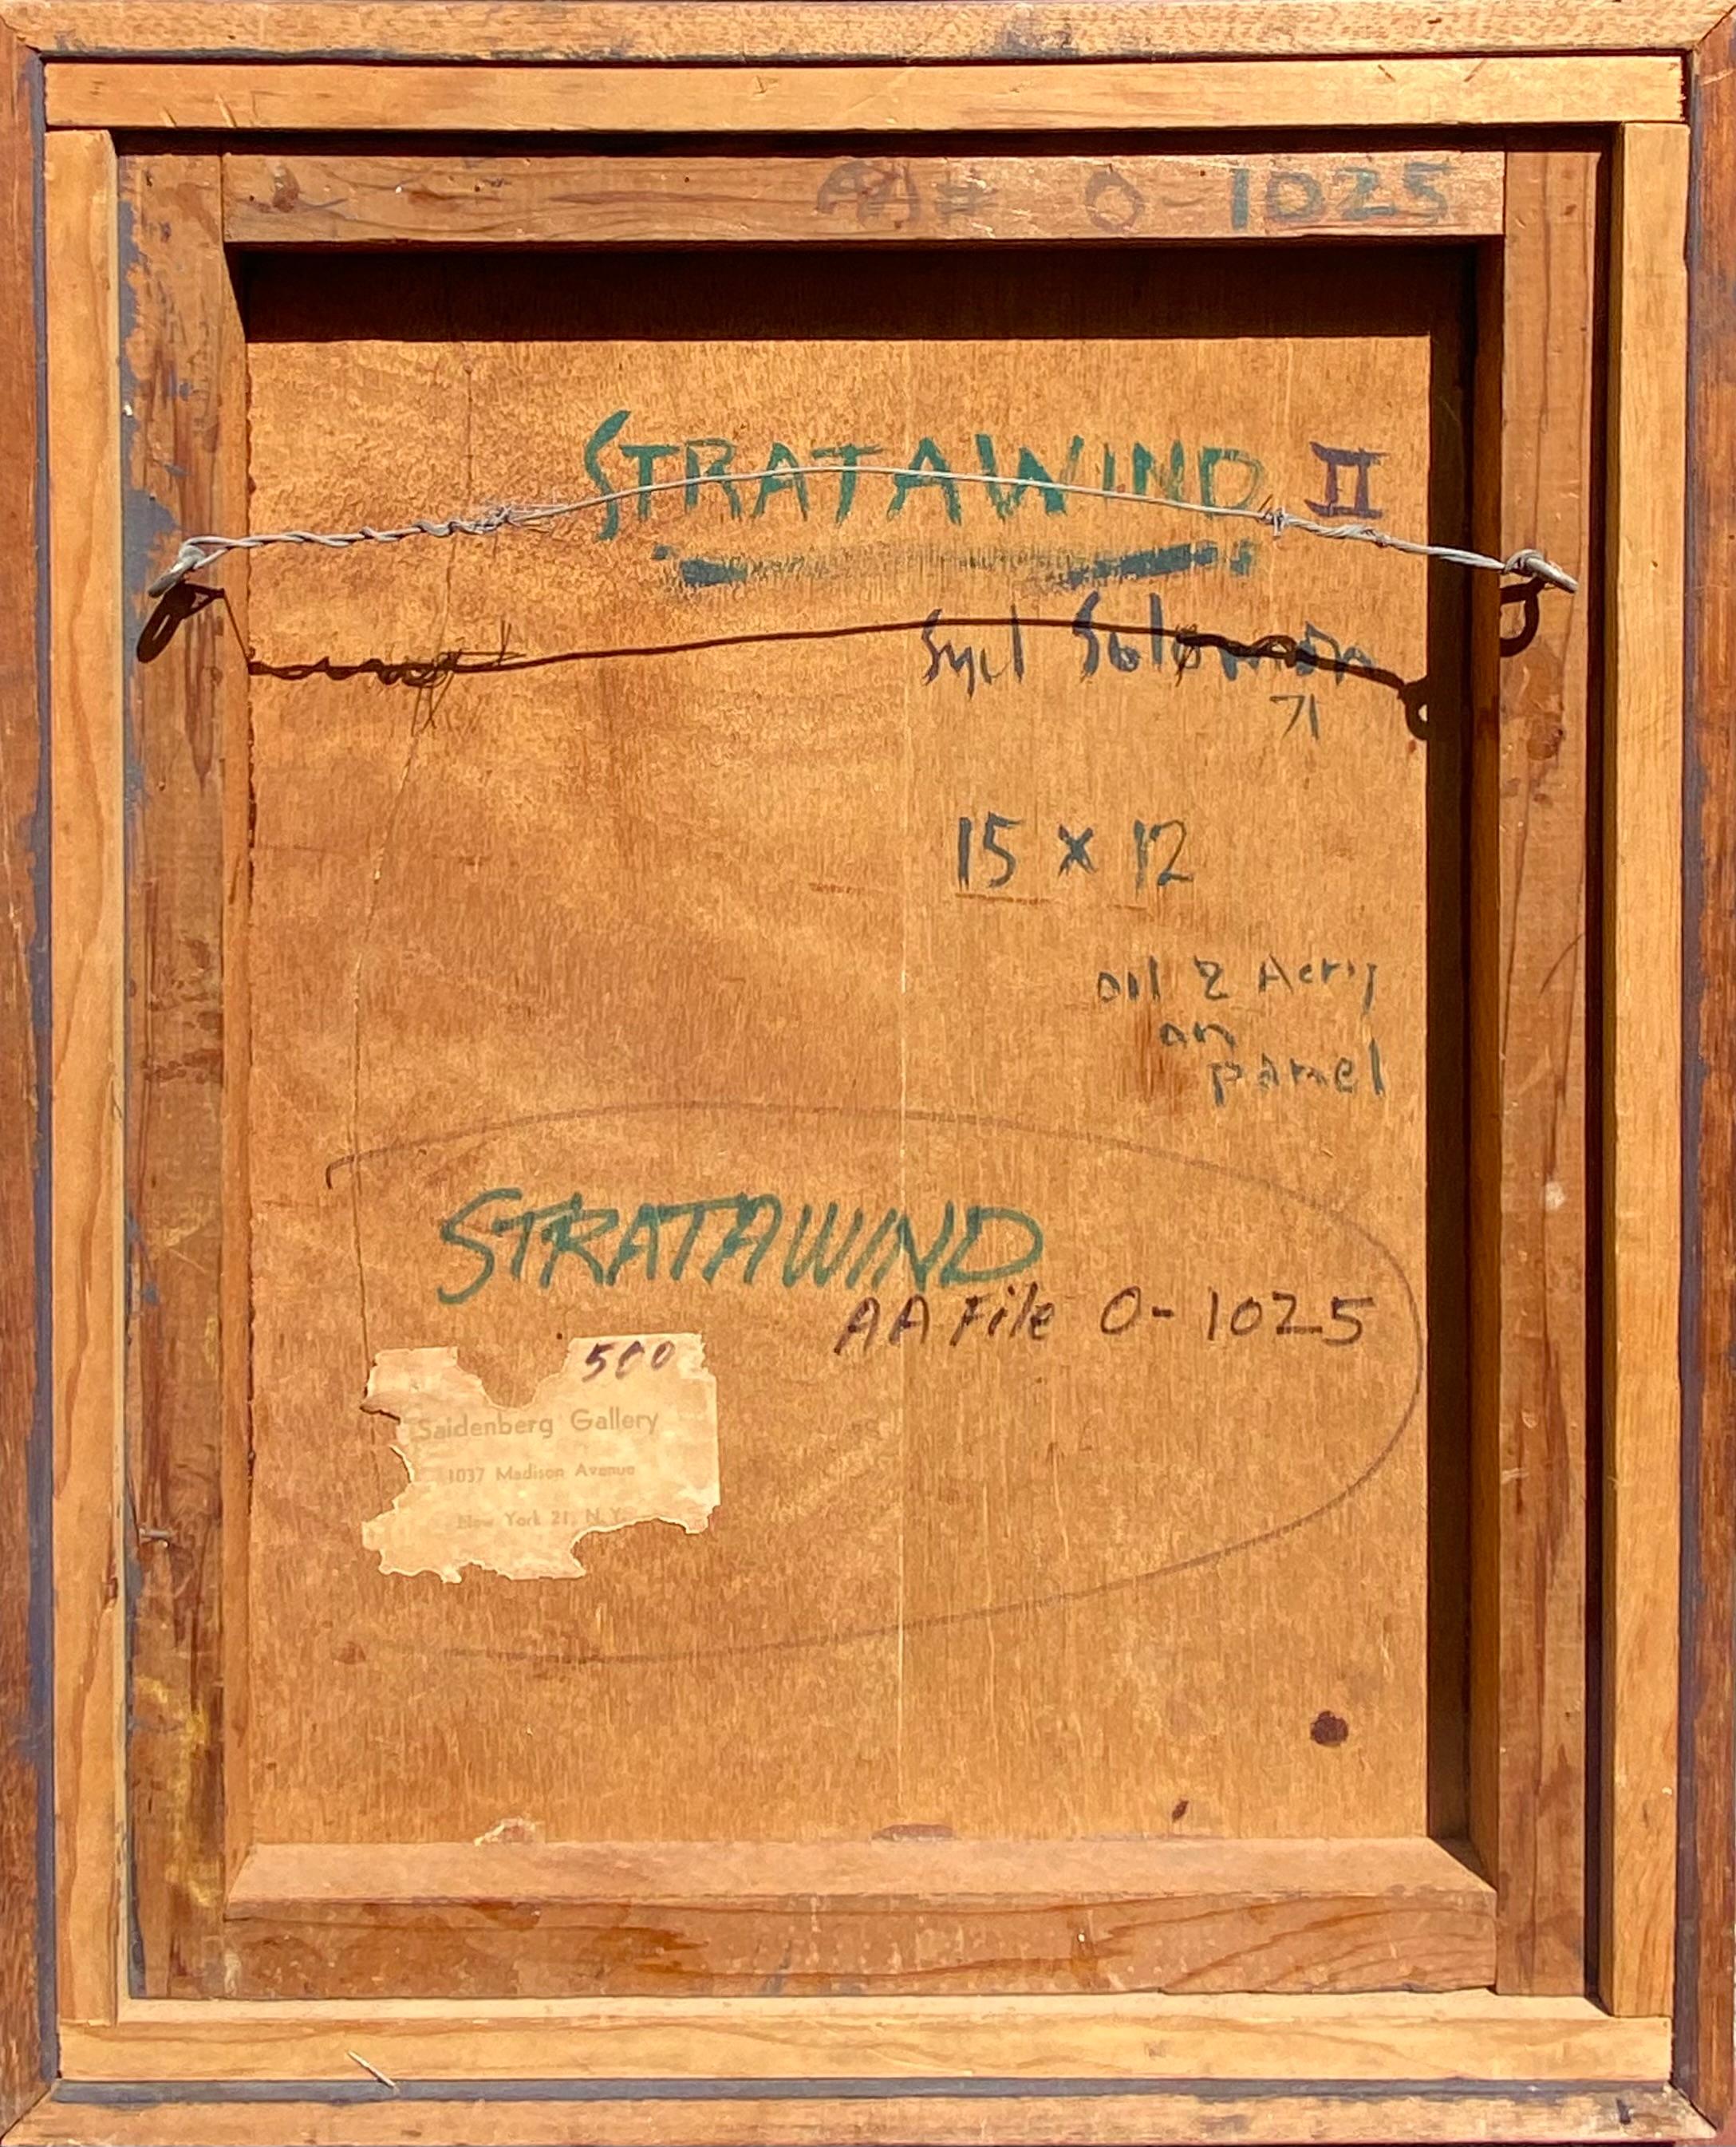 AA# O-1025
STRATAWIND II
Syd Solomon
71
15 x 12
oil & Acry
on
panel
STRATAWIND
AA File O-1025
500
Saidenberg Gallery
1037 Madison Avenue
New York 21, N. Y.